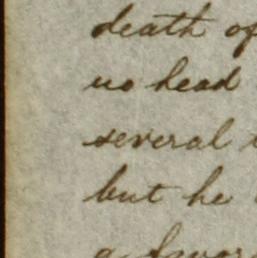 death of
no head
several
but he
a favor